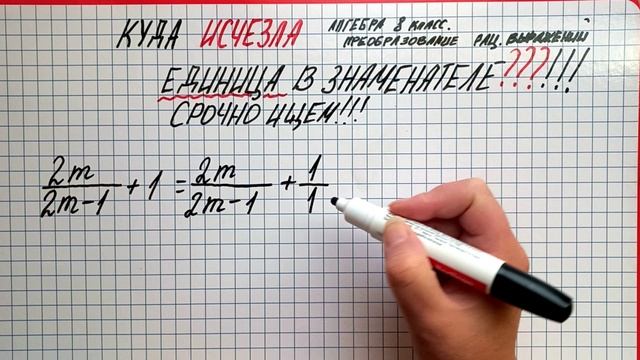 КУДА ИСЧЕЗЛА
АЛГЕБРА 8 КЛАСС.
ПРЕОБРАЗОВАНИЕ РАЦ. ВЫРАЖЕНИЙ
ЕДИНИЦА В ЗНАМЕНАТЕЛЕ???!!!
СРОЧНО ИЩЕМ!!!
2m/2m-1 + 1 = 2m/2m-1 + 1/1